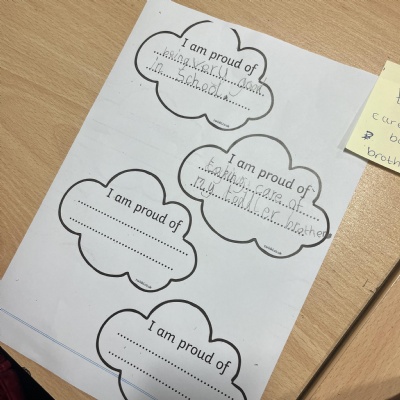 I am proud of
being very good
in school.
I am proud of
taking care of
my toddler brother
I am proud of
I am proud of
care
brothe